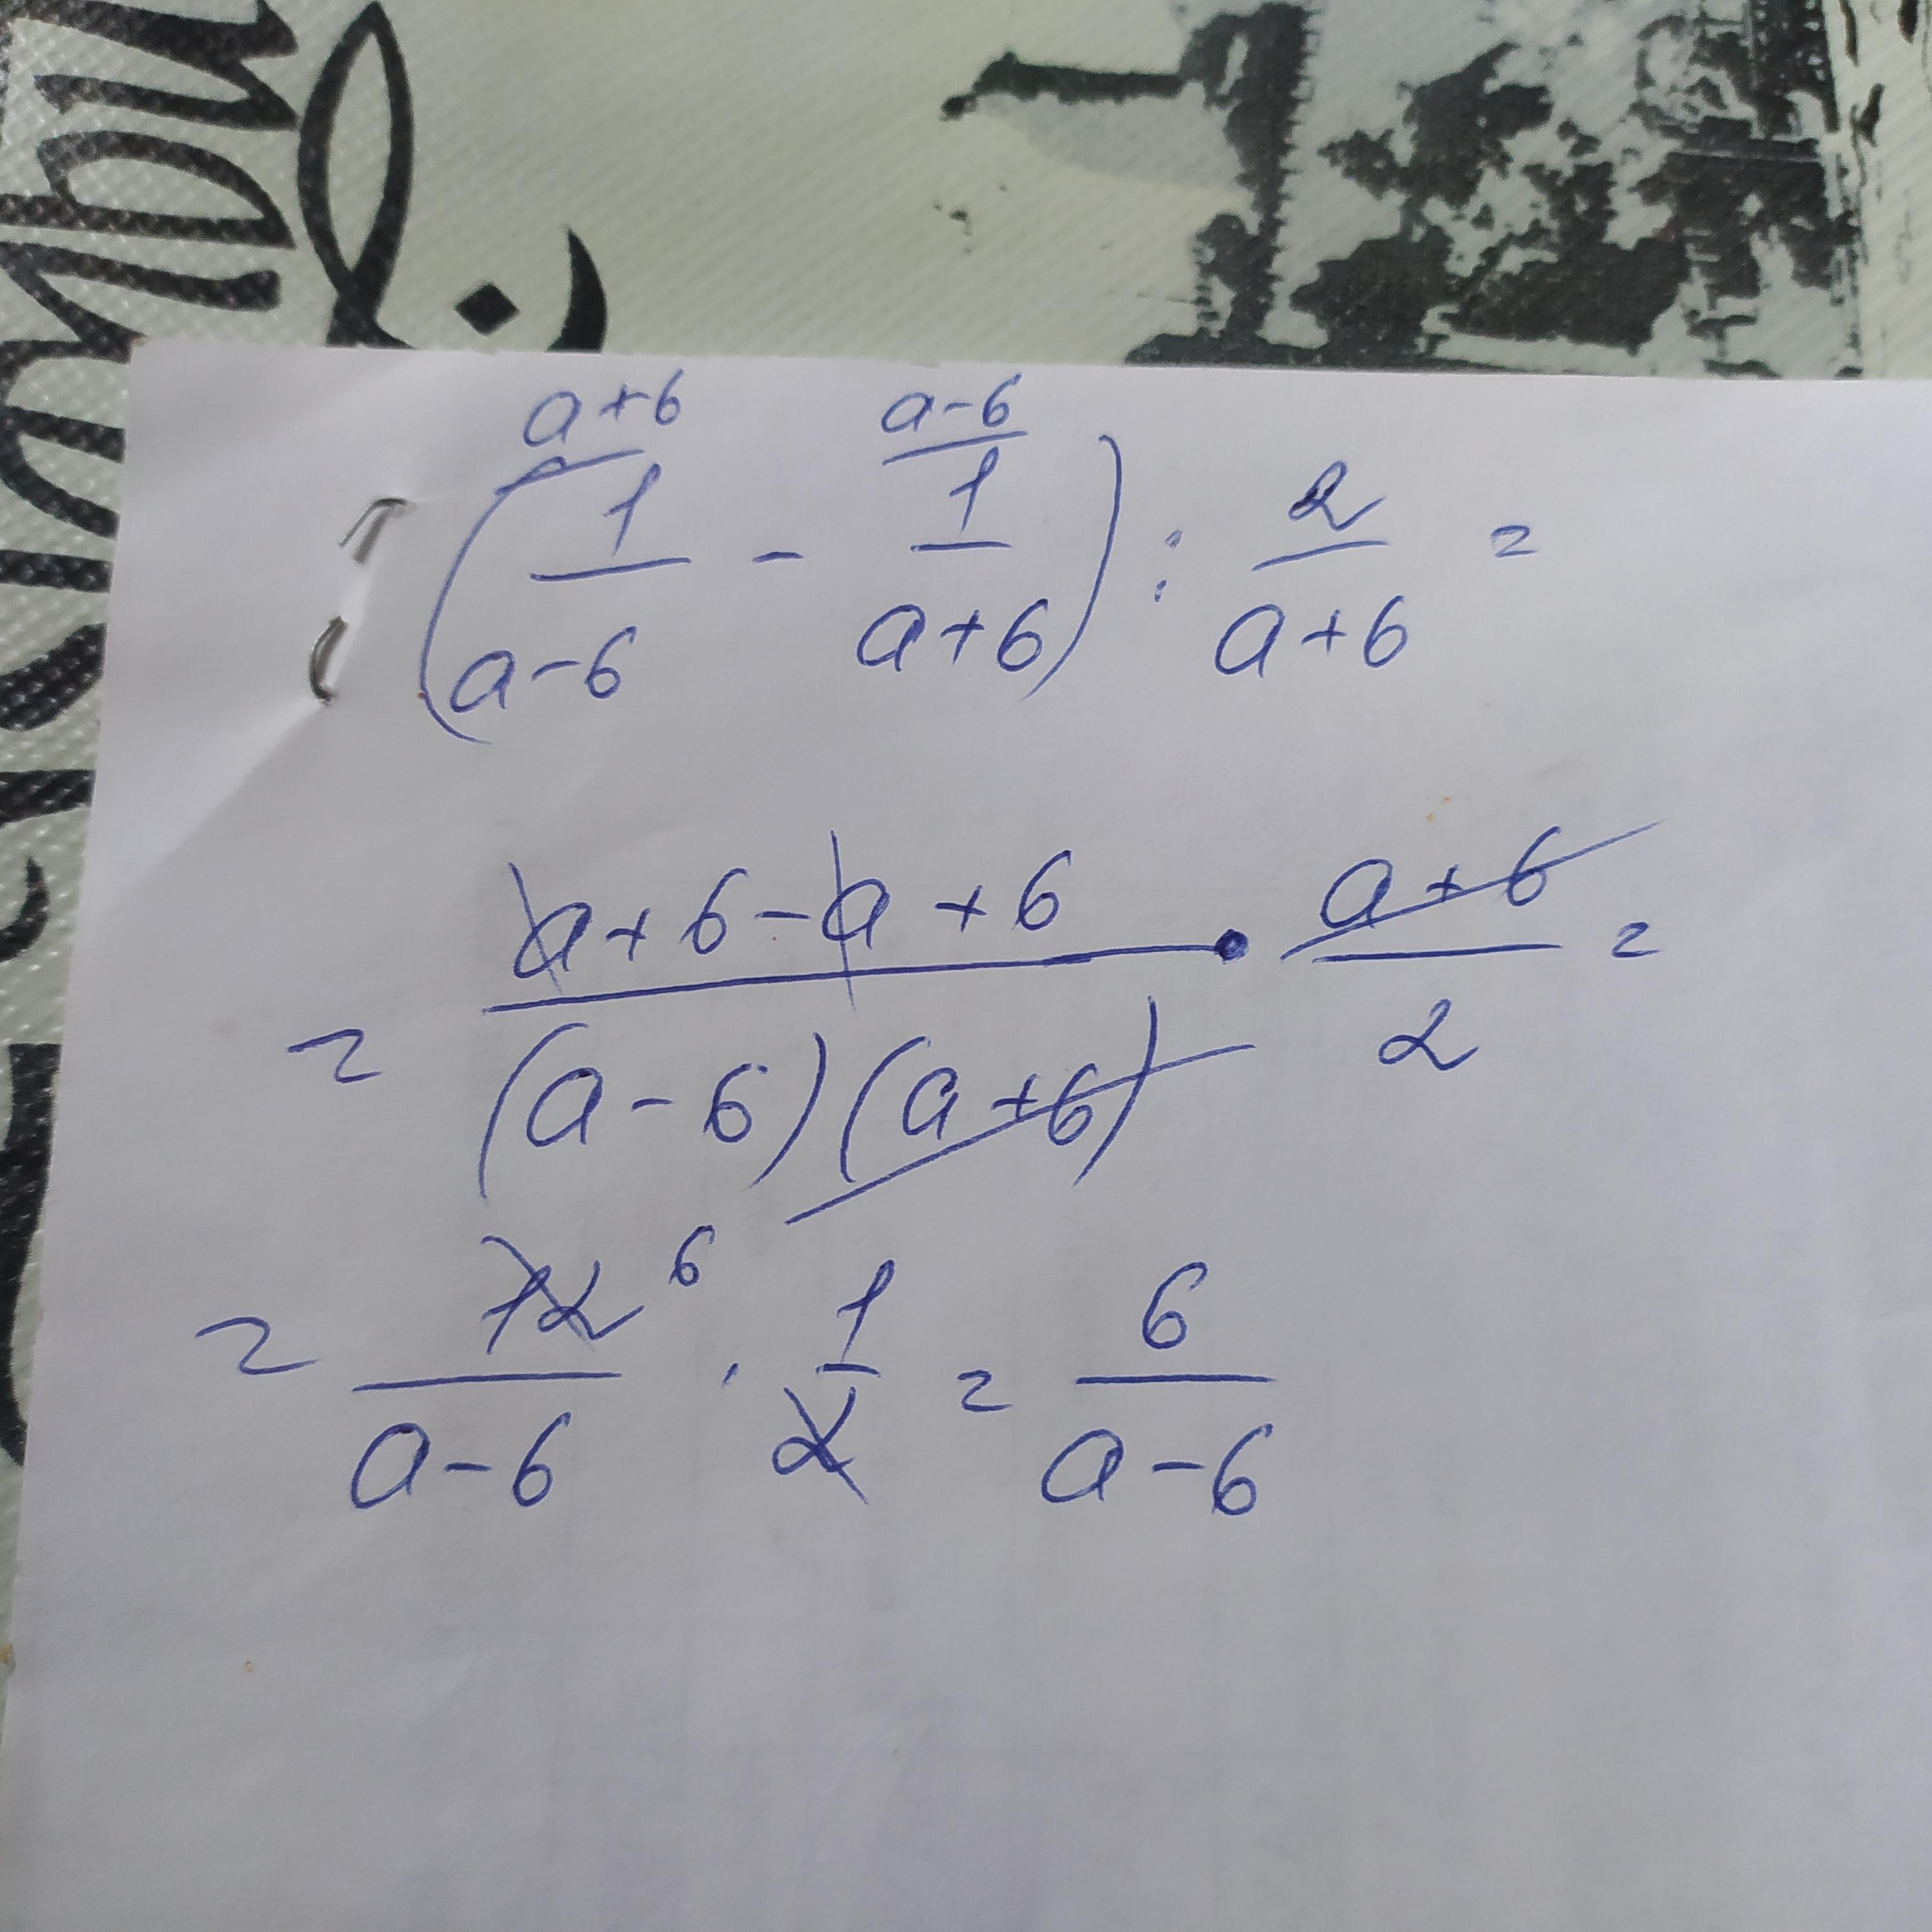 a+6 a-6
(1/(a-6) - 1/(a+6)) : 2/(a+6) =
= (a+6-a+6)/((a-6)(a+6)) · (a+6)/2 =
= 12 6/(a-6) · 1/2 = 6/(a-6)